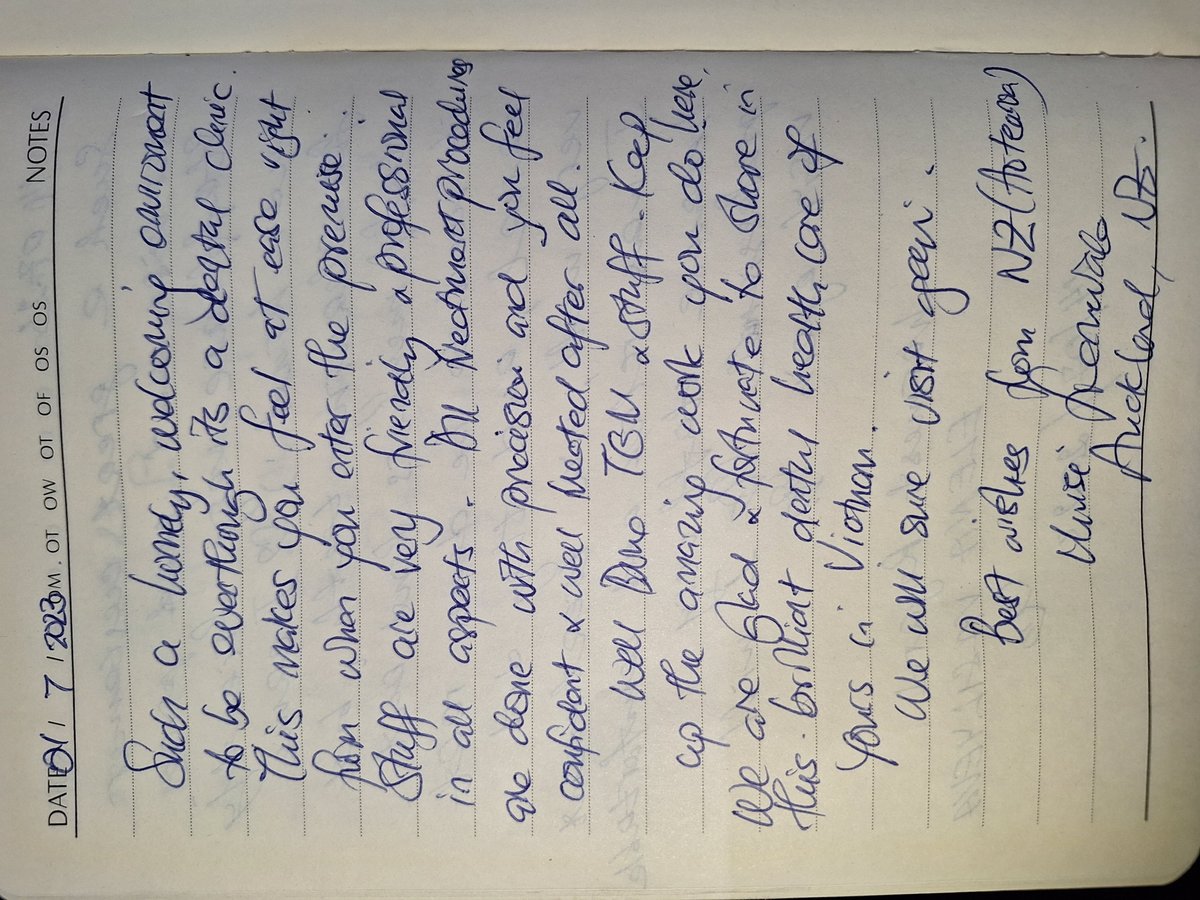 DATE 01 / 7 / 2023 NOTES
M. OT OW OT OF OS OS
Such a homely, welcoming enviroment
to be eventhough its a dental clinic.
This makes you feel at ease right
from when you enter the premise.
Stuff are very friendly & professional
in all aspects. All treatment procedures
are done with precision and you feel
confident & well treated after all.
Well Done TBM & stuff. Keep
up the amazing work you do here.
We are glad & fortunate to share in
this. brilliant dental health care of
yours in Vietnam.
We will sure visit again.
Best wishes from NZ (Aotearoa)
Auckland, NZ.